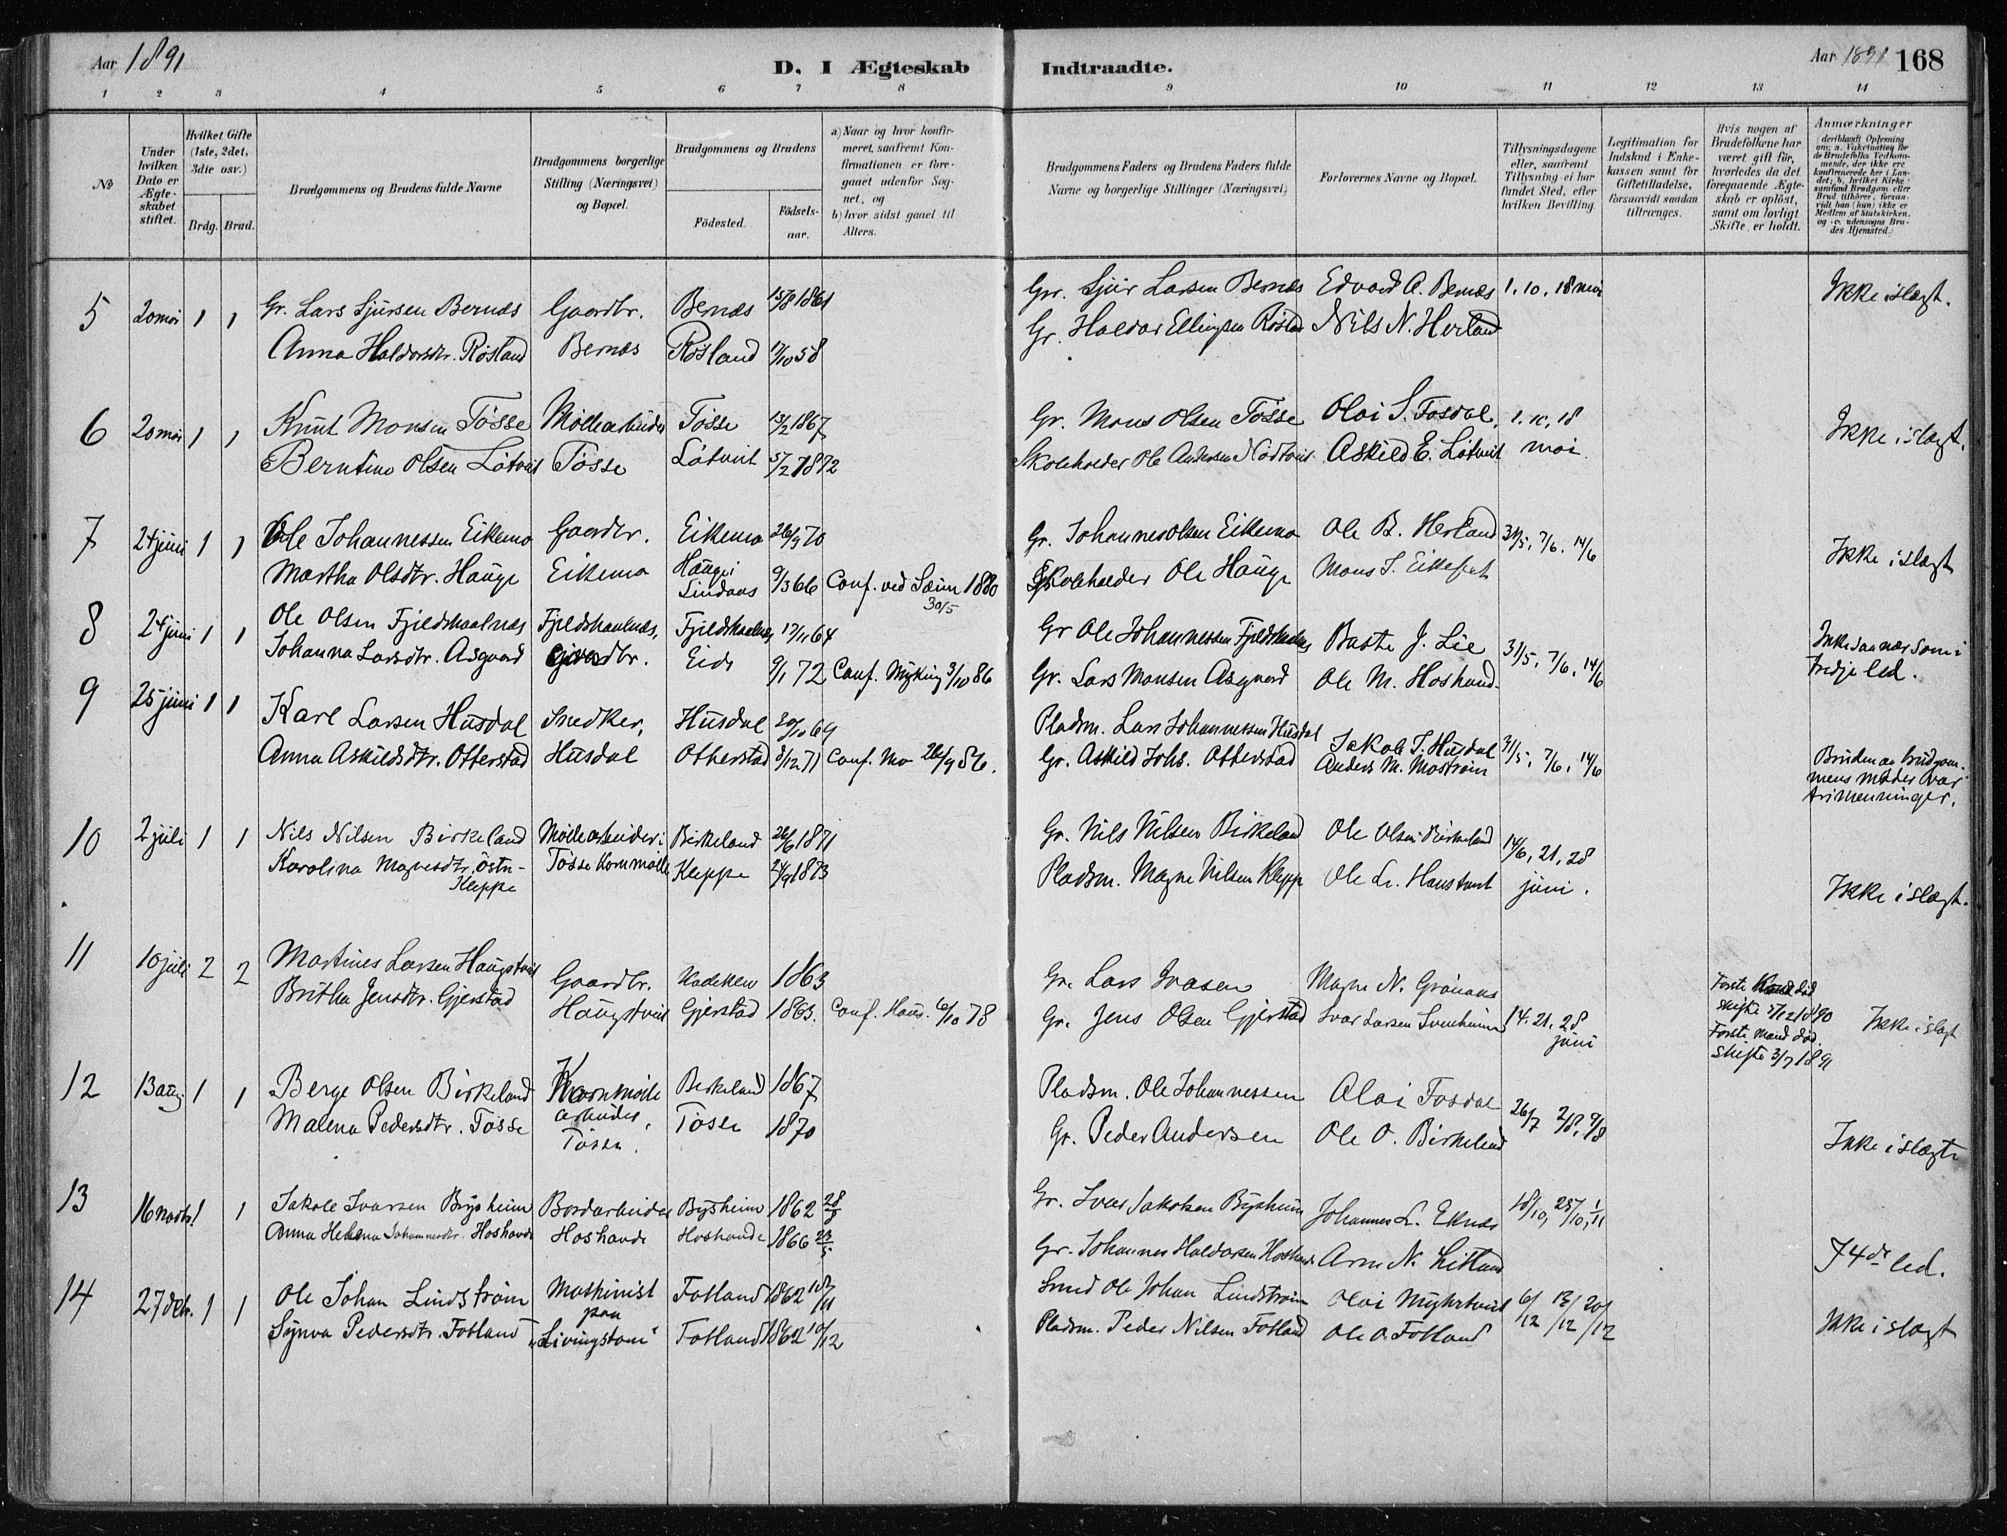 Aar 1891
D. I Ægteskab Indtraadte.
Aar 1891 168
1 2 3 4 5 6 7 8 9 10 11 12 13 14
No
Under hvilken Dato er Ægteskabet stiftet.
Hvilket Gifte (1ste, 2det, 3die osv.)
Brdg. Brud.
Brudgommens og Brudens fulde Navne
Brudgommens borgerlige Stilling (Næringsvei) og Bopæl.
Brudgommens og Brudens
Födested.
Födselsaar.
a) Naar og hvor konfirmeret, saafremt Konfirmationen er foregaaet udenfor Sognet, og
b) hvor sidst gaaet til Alters.
Brudgommens Faders og Brudens Faders fulde Navne og borgerlige Stillinger (Næringsvei)
Forlovernes Navne og Bopæl.
Tillysningsdagene eller, saafremt Tillysning ei har fundet Sted, efter hvilken Bevilling.
Legitimation for Indskud i Enkekassen samt for Giftetilladelse, forsaavidt saadan tiltrænges.
Hvis nogen af Brudefolkene har været gift för, hvorledes da det foregaaende Ægteskab er oplöst, samt om lovligt Skifte er holdt.
Anmærkninger
5 20 mai 1 1 Gr. Lars Sjursen Bernæs Gaardbr. Bernæs 15/8 1861 Gr. Sjur Larsen Bernæs Edvard A. Bernæs 1, 10, 18 mai Ikke i slægt.
Anna Haldorsdtr. Røsland Bernæs Røsland 17/10 58 Gr. Haldor Ellingsen Røsland Nils N. Herland
6 20 mai 1 1 Knut Monsen Tøsse Møllearbeider Tøsse 13/2 1867 Gr. Mons Olsen Tøsse Olai S. Fosdal 1, 10, 18 Ikke i slægt.
Berntine Olsen Løtveit Tøsse Løtveit 5/2 1872 Skoleholder Ole Andersen Askild E. Løtveit mai.
7 24 juni 1 1 Ole Johannessen Eikemo Gaardbr. Eikemo 26/3 70 Gr. Johannes Olsen Eikemo Ole B. Herland 31/5, 7/6, 14/6 Ikke i slægt
Martha Olsdtr. Hauge Eikemo Hauge i Lindaas 9/3 66 Conf. ved Sæim 1880 30/5 Skoleholder Ole Hauge Mons I. Eikefet
8 24 juni 1 1 Ole Olsen Fjeldskaalnæs Fjeldskaalnæs, Fjeldskaalnæs 17/11 64 Gr Ole Johannessen Fjeldskaalnæs Baste J. Lie 31/5, 7/6, 14/6 Ikke saa nær som i
Johanna Larsdtr. Asgaard Gaardbr. Eide 9/1 72 Conf. Myking 3/10 86 Gr. Lars Monsen Asgaard Ole M. Hosland. tredje led.
9 25 juni 1 1 Karl Larsen Husdal Snedker, Husdal 30/10 69 Pladsm. Lars Johannessen Husdal Jakob I. Husdal 31/5, 7/6, 14/6
Anna Askildsdtr. Otterstad Husdal Otterstad 3/12 71 Conf. Mo 26/9 86. Gr. Askild Johs. Otterstad Anders M. Mostrøm
Bruden og brudgommens moder var trimenninger.
10 2 juli 1 1 Nils Nilsen Birkeland Møllearbeider i Birkeland 26/6 1871 Gr. Nils Nilsen Birkeland Ole Olsen Birkeland 14/6, 21, 28
Karolina Magnesdtr. Østn-Kleppe Tøsse Kornmølle Kleppe 24/9 1873 Pladsm. Magne Nilsen Klepp Ole L. juni. Ikke i slægt.
11 10 juli 2 2 Martines Larsen Haugstveit Gaardbr. 1863 Gr. Lars Ivarsen Magne N. Grønaas Første Kone død skifte 1890
Britha Jensdtr. Gjerstad Haugstveit Gjerstad 1863. Conf. Haus. 6/10 78 Gr. Jens Olsen Gjerstad Ivar Larsen 14. 21. 28 juni Første mand død. skifte 3/7 1891 Ikke i slægt
12 13 aug 1 1 Berge Olsen Birkeland Kornmølle Birkeland 1867 Pladsm. Ole Johannessen Olai Fosdal 26/7 2/8, 9/8
Malena Pedersdtr. Tøsse arbeider, Tøsse. Tøsse 1870 Gr. Peder Andersen Ole O. Birkeland Ikke i slægt
13 16 novbr. 1 1 Jakob Ivarsen Bysheim Bordarbeider Bysheim 1862 Gr. Ivar Jakobsen Bysheim Johannes L. Eknæs 18/10, 25/10, 1/11
Anna Helena Johannesdtr. Hoshavde Hoshavde Hoshavde 1866 23/5 Gr. Johannes Haldorsen Arne N. Litland I 4de led.
14 27 dcbr. 1 1 Ole Johan Lindstrøm Maskinist Fotland 1862 Smed Ole Johan Lindstrøm Olai Myhrtveit 6/12 13/12 20/12
Synva Pedersdtr. Fotland paa „Livingstone“ Fotland 1862 10/12 Pladsm. Peder Nilsen Fotland Ole O. Fotland Ikke i slægt